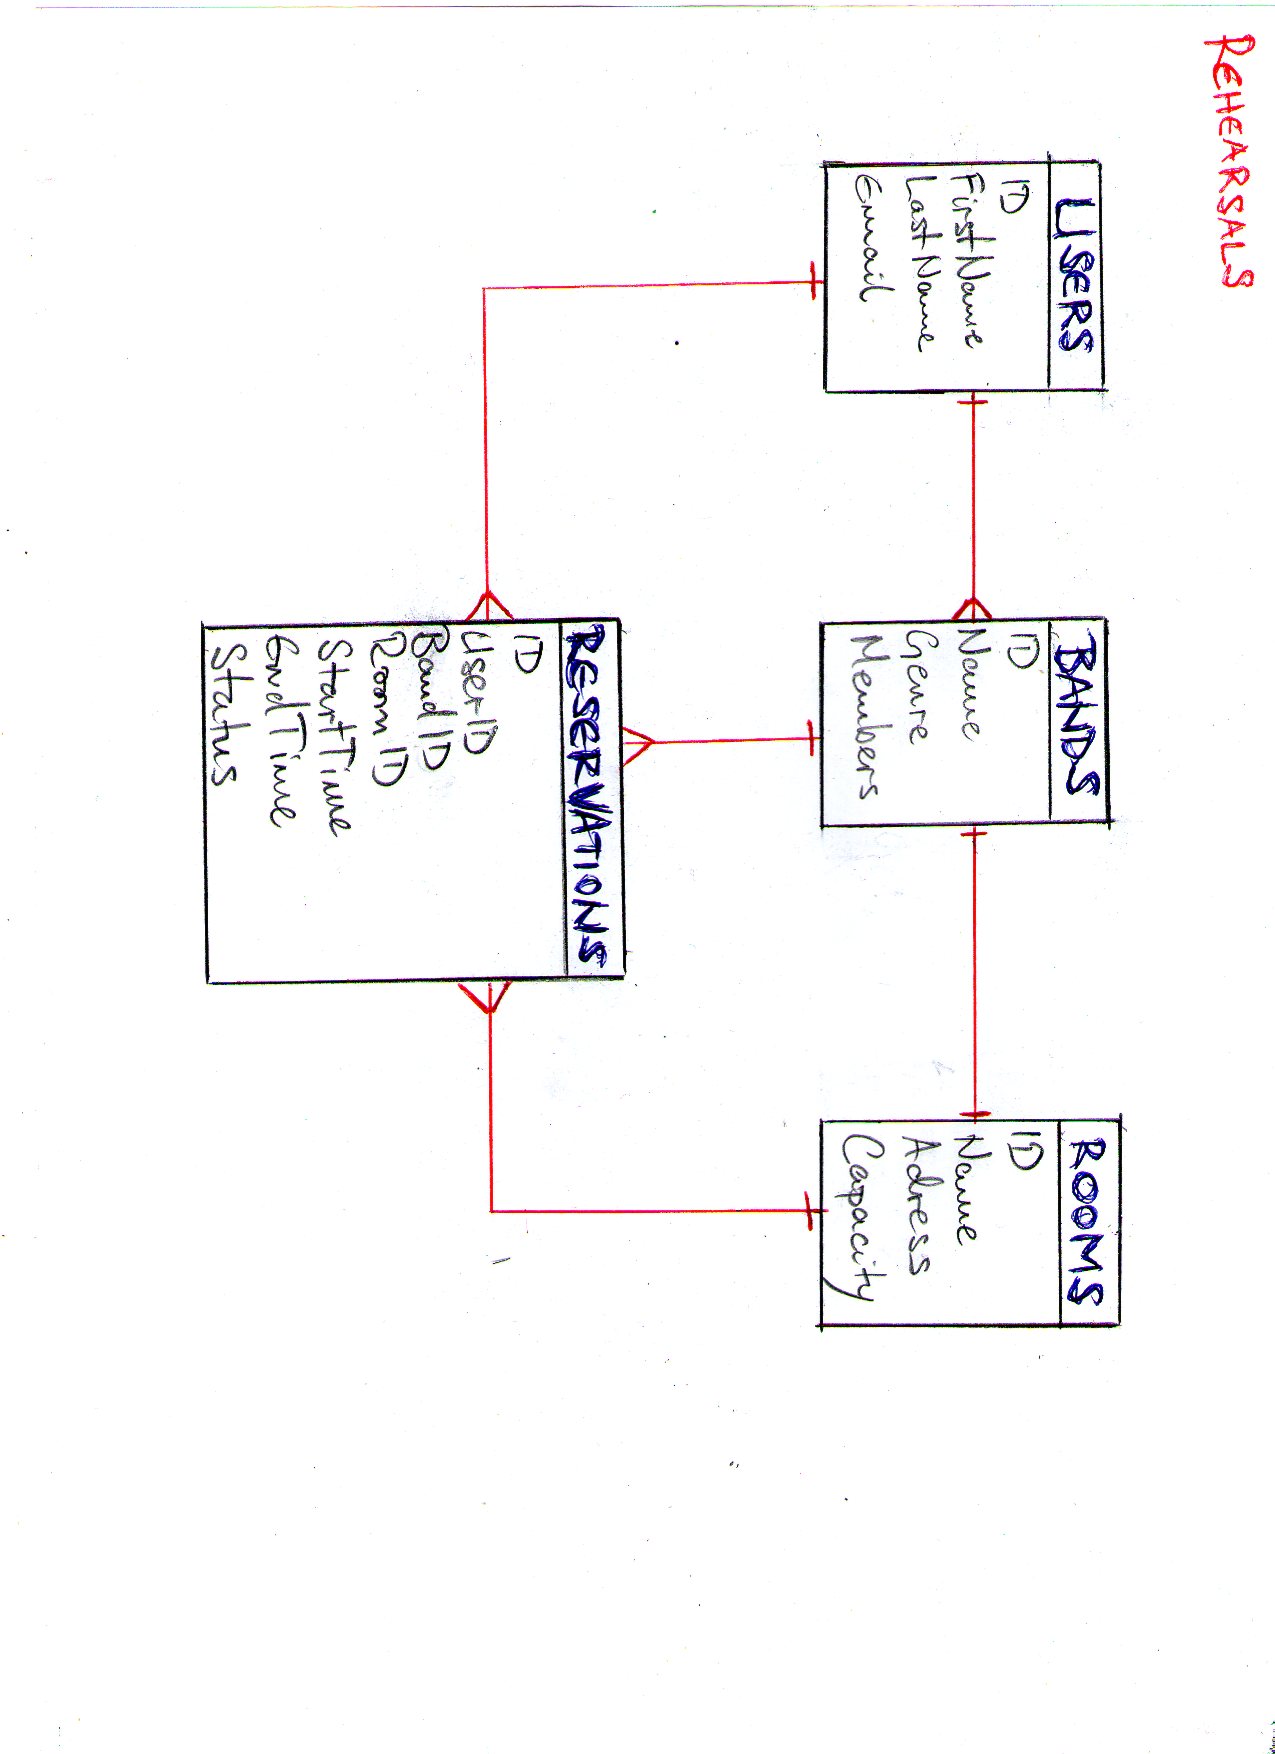 REHEARSALS
USERS
ID
FirstName
LastName
Email
BANDS
ID
Name
Genre
Members
ROOMS
ID
Name
Adress
Capacity
RESERVATIONS
ID
UserID
BandID
RoomID
StartTime
EndTime
Status